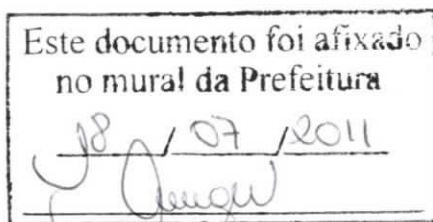 Este documento foi afixado
no mural da Prefeitura
18 / 07 / 2011